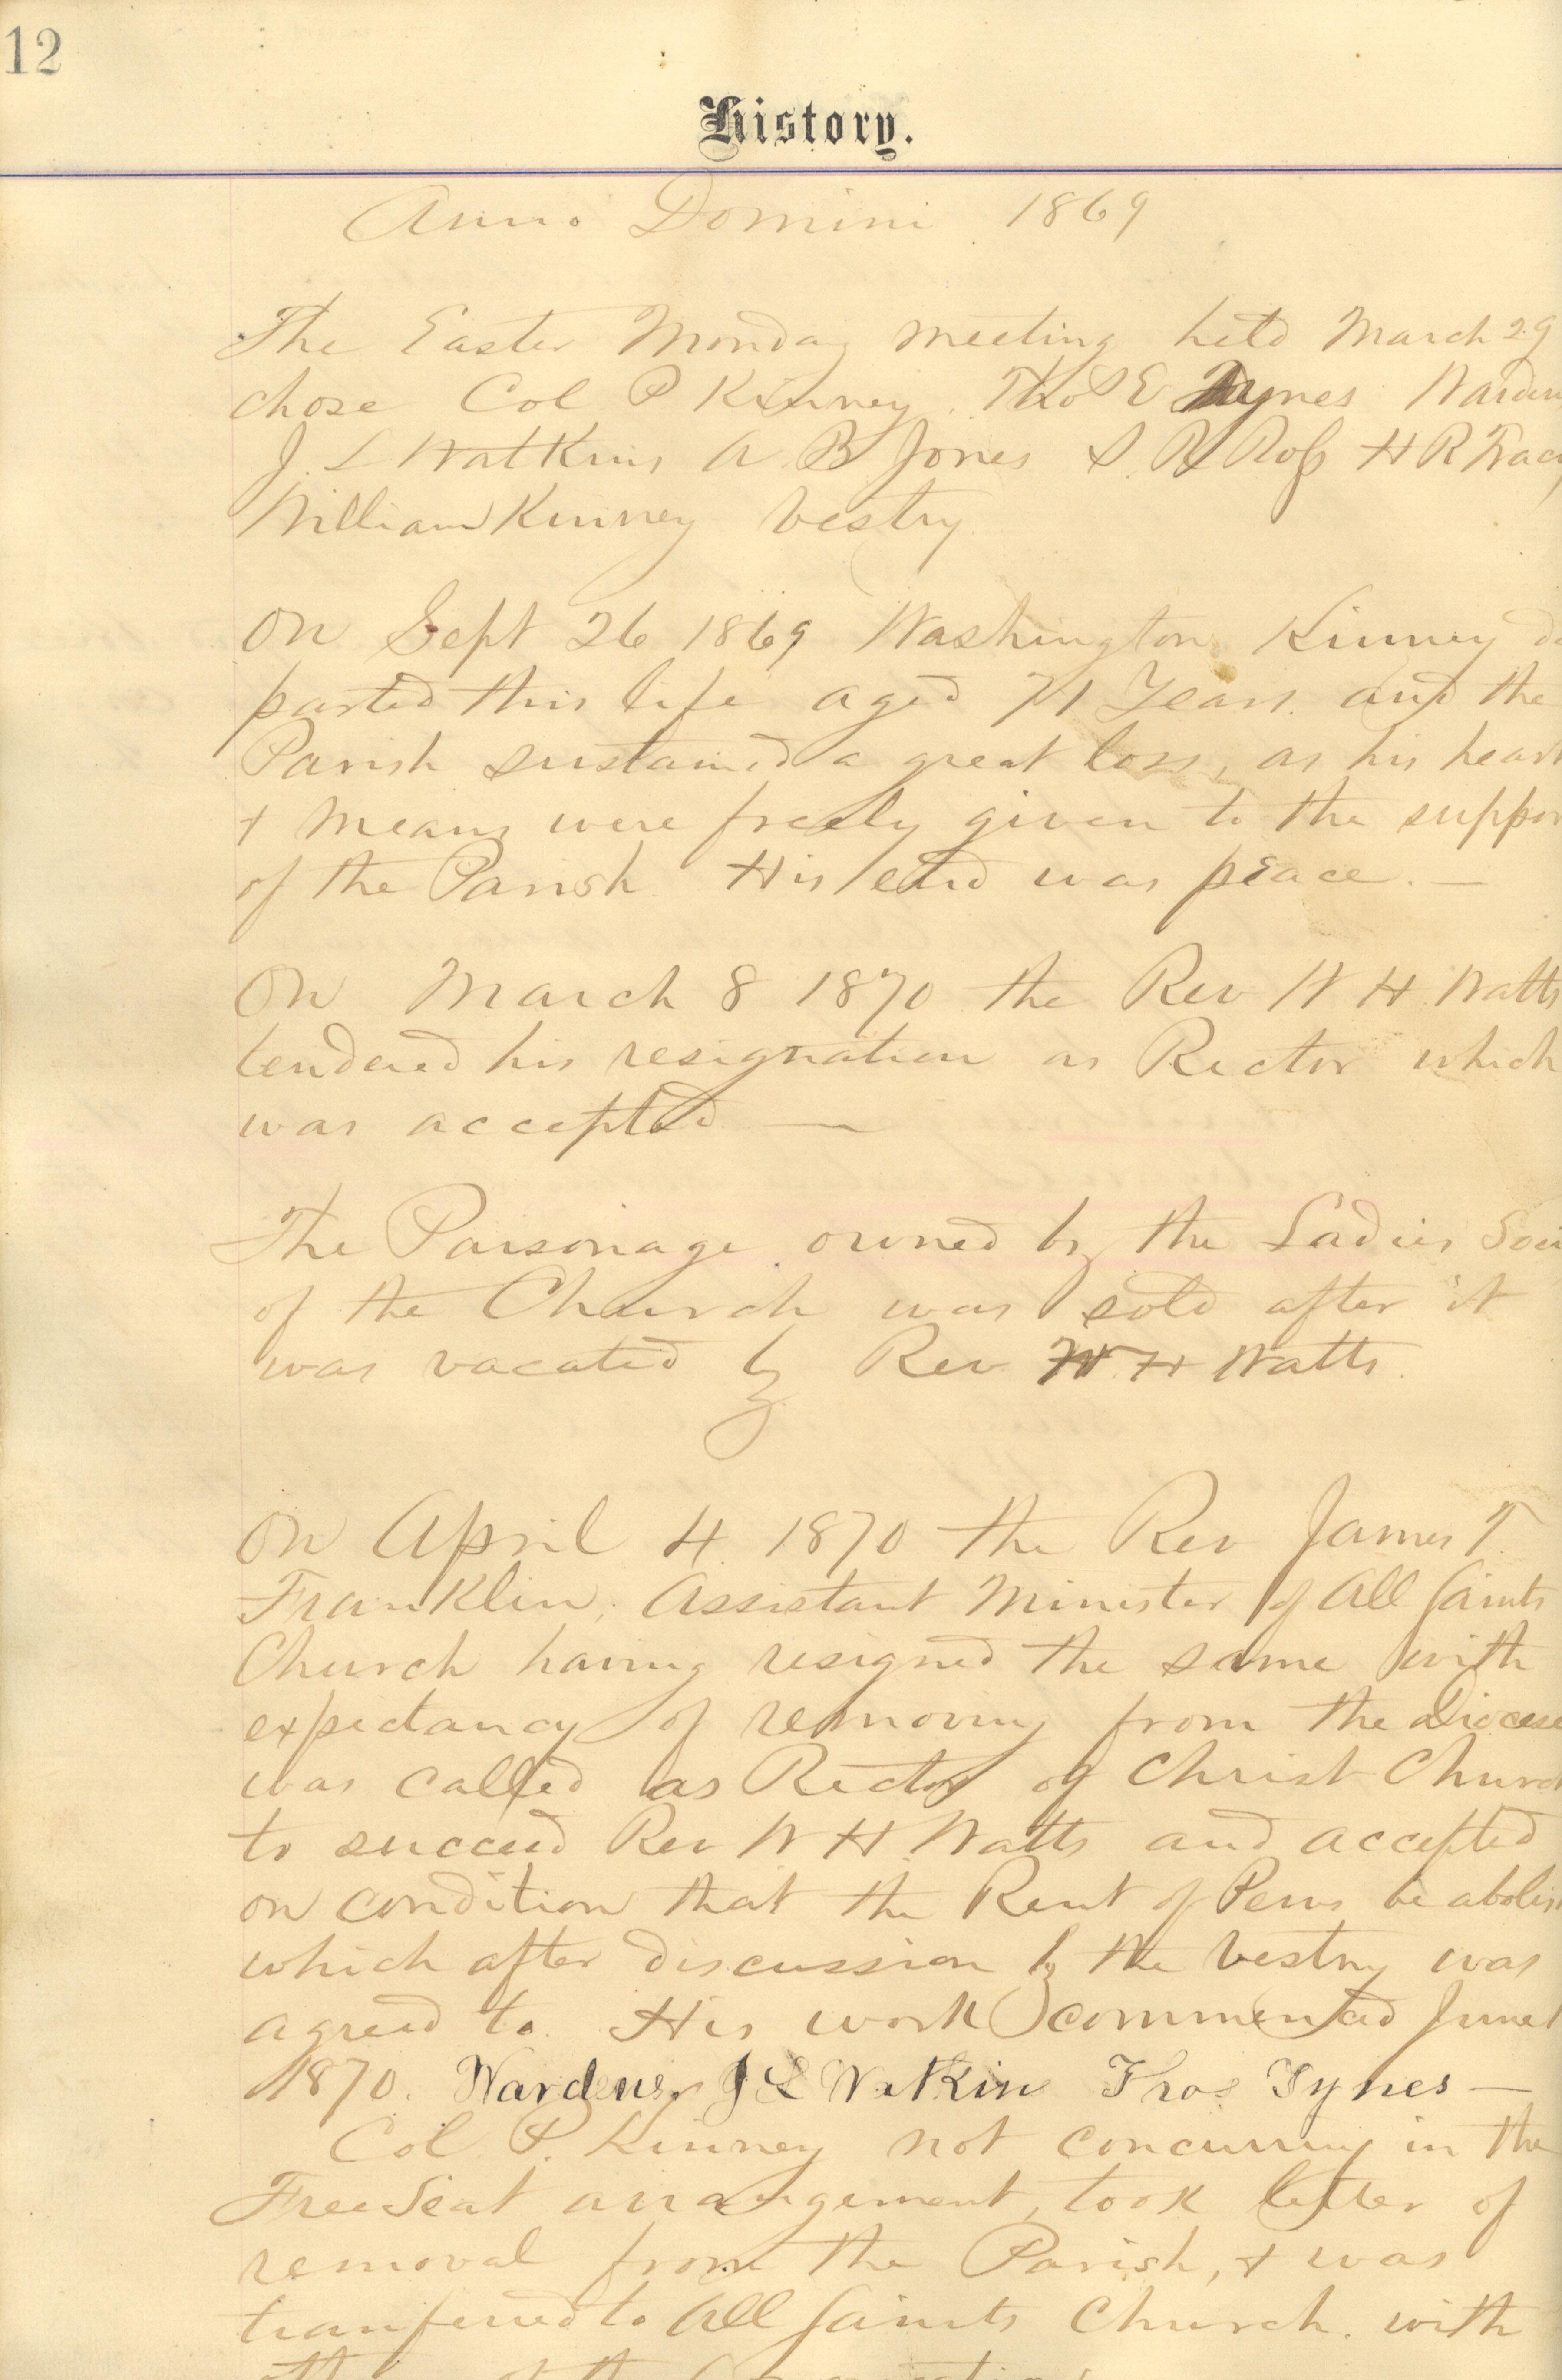 12
History.
Anno Domini 1869
The Easter Monday meeting held March 29
chose Col P Kinney. Thos E Tynes Warden
J. L Watkins A B Jones S. R Ross H R Tracy
William Kinney Vestry
On Sept 26 1869 Washington Kinney de
parted this life aged 71 Years. and the
Parish sustained a great loss, as his heart
+ means were freely given to the suppor
of the Parish His end was peace. —
On March 8 1870 the Rev W H. Watts
tendered his resignation as Rector which
was accepted —
The Parsonage owned by the Ladies Soci
of the Church was sold after it
was vacated by Rev W. H Watts.
On April 4 1870 the Rev James T.
Franklin, Assistant Minister of All Saints
Church having resigned the same with
expectancy of removing from the Diocese
was called as Rector of Christ Church
to succeed Rev W H. Watts and accepted
on condition that the Rent of Pews be abolis
which after discussion by the Vestry was
agreed to. His work commented June 1
1870. Wardens. J L Watkins Thos Tynes —
Col P. Kinney not concurring in the
Free Seat arrangement, took letter of
removal from the Parish, + was
tranferred to All Saints Church. with